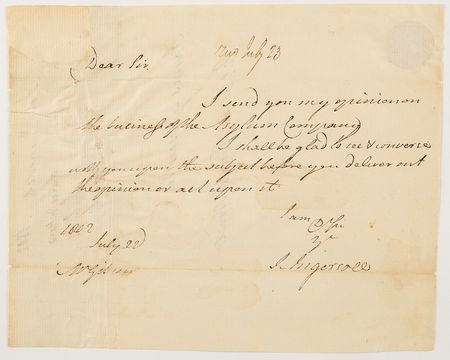 recd July 23
Dear Sir.
I send you my opinion on
the business of the Asylum Company
I shall be glad to see & converse
with you upon the subject before you deliver out
the opinion or act upon it
I am D Sir
Yr
1802
July 22
J. Ingersoll
Mr Gibson